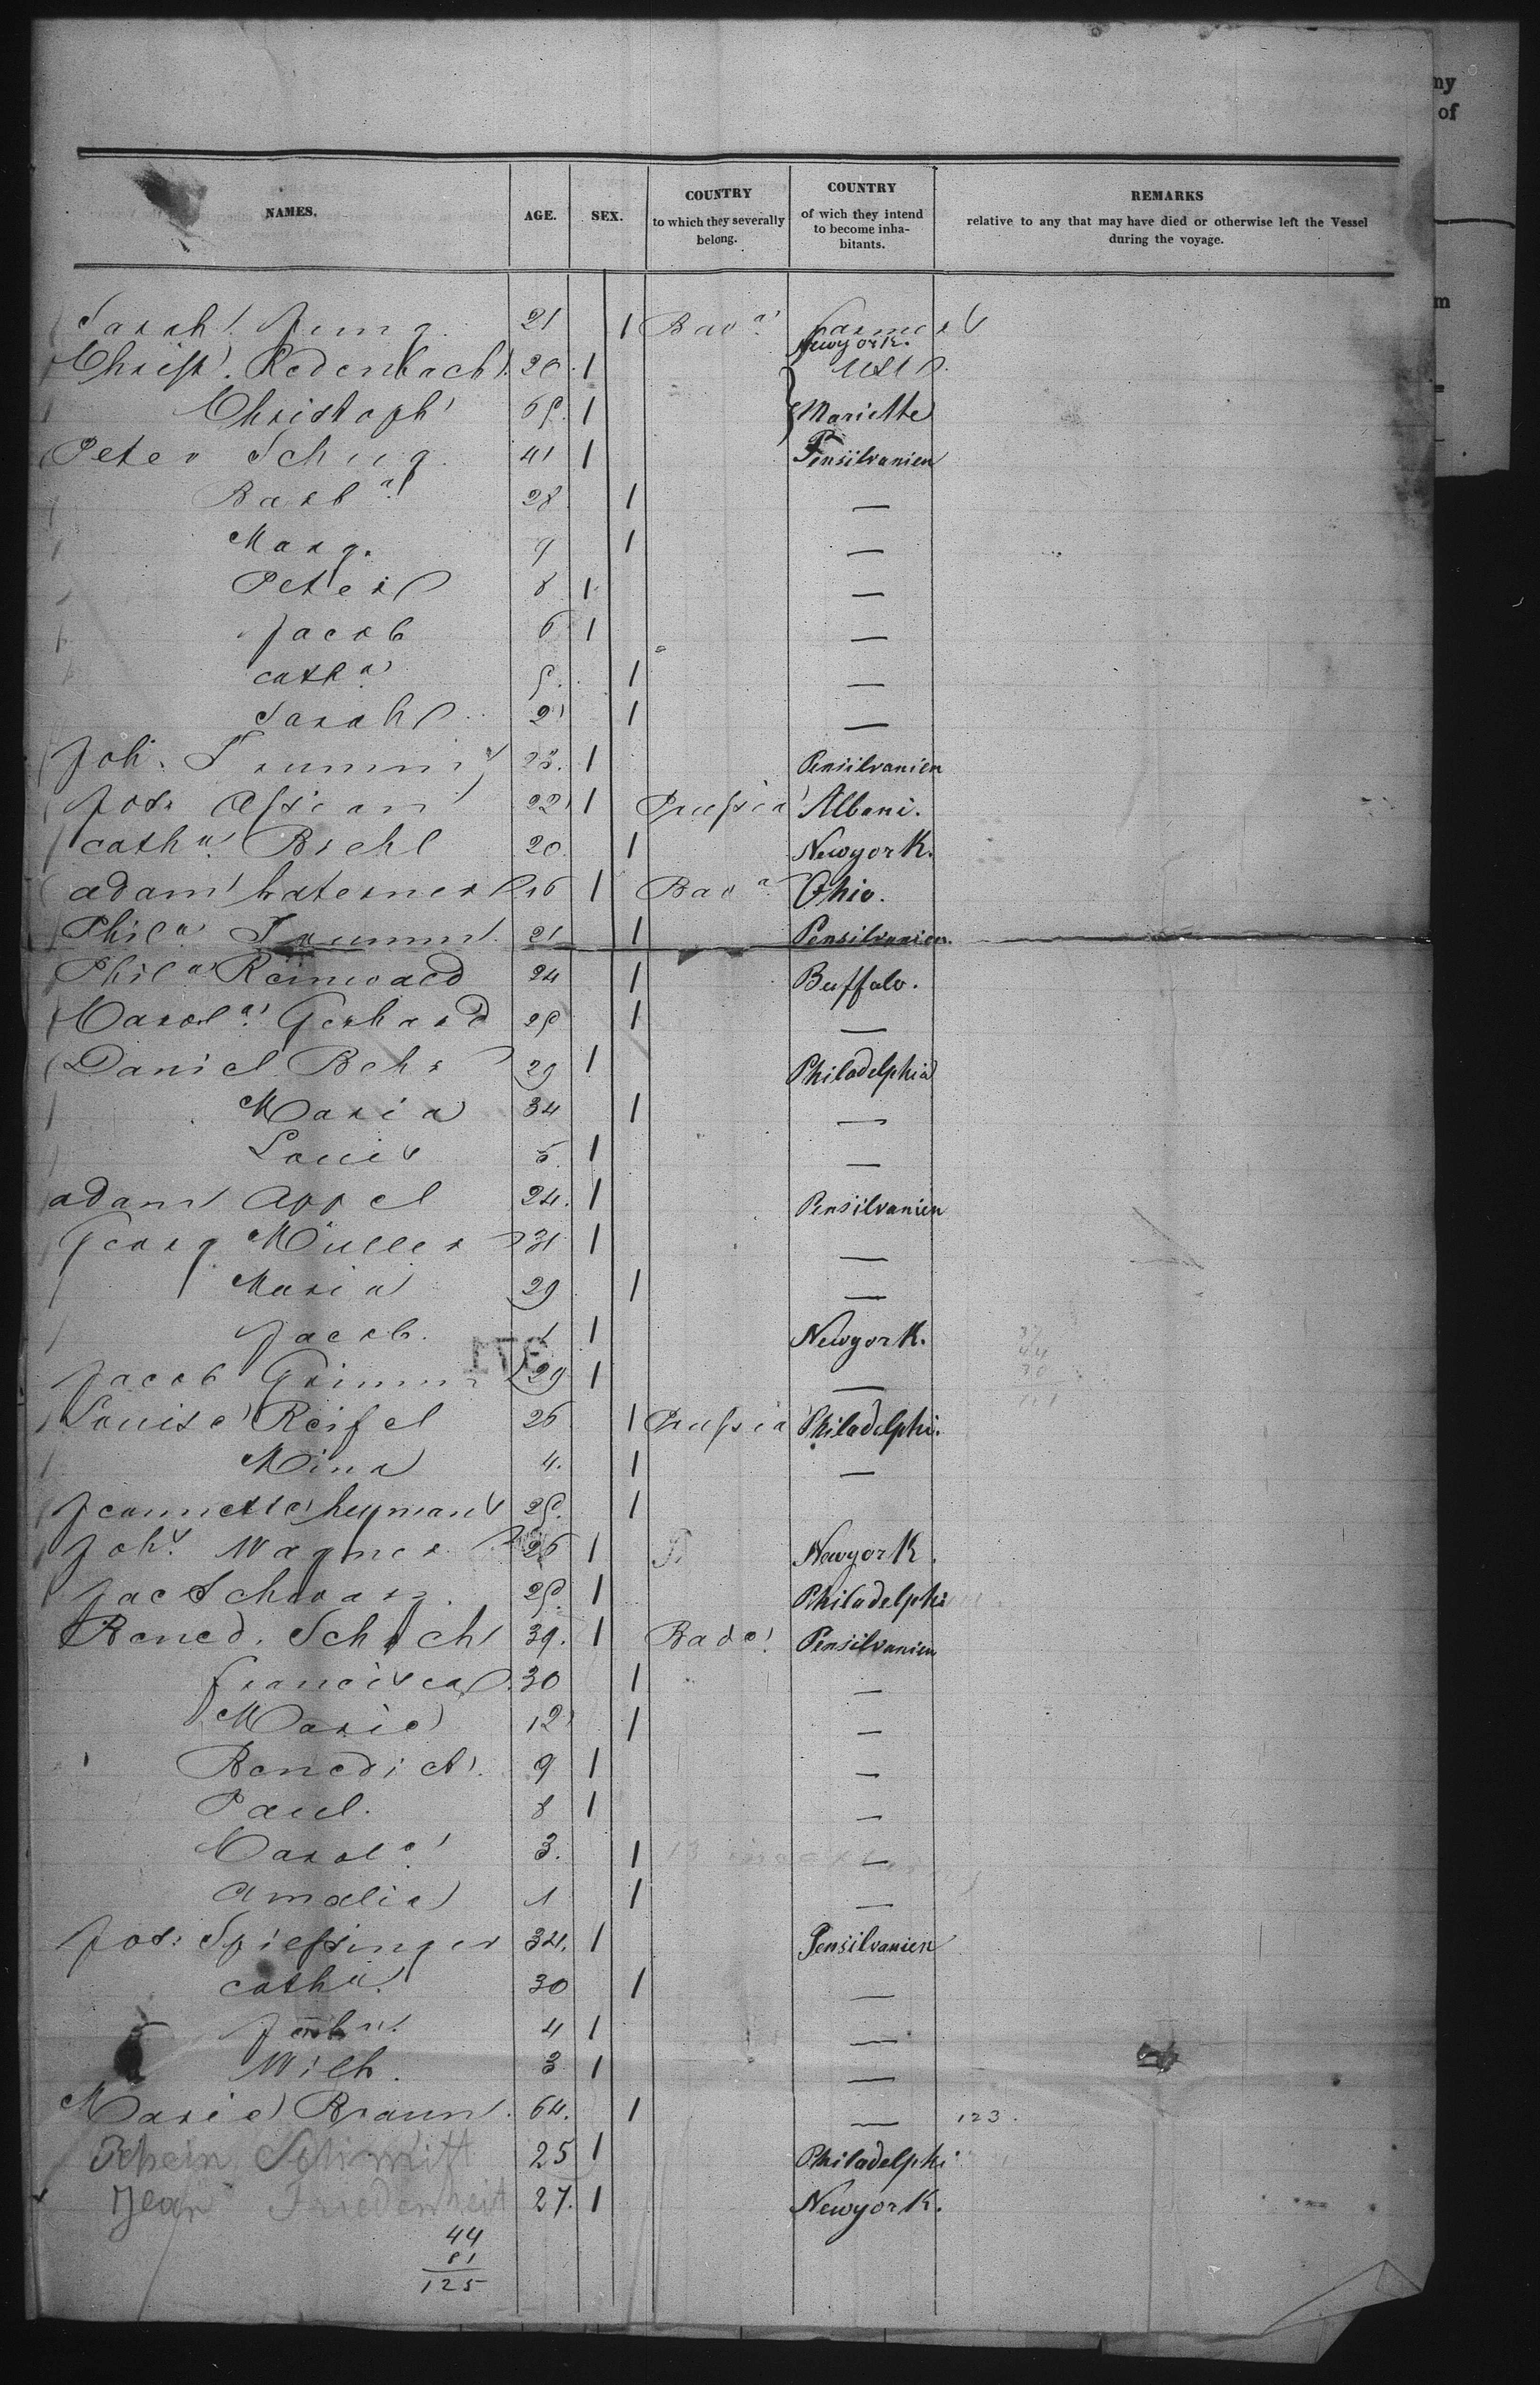 ny
of
m
NAMES. AGE. SEX. COUNTRY to which they severally belong. COUNTRY of wich they intend to become inha-bitants. REMARKS relative to any that may have died or otherwise left the Vessel during the voyage.
Sarah Jung 21 1 Bava farmers
Newyork.
Christ. Redenbach 20 1
Christoph 65 1 Mariette
Peter Schug 41 1 Pensilvanien
Barba 28 1 —
Marg. 9 1 —
Peter 8 1 —
Jacob 6 1 —
Catha 5 1 —
Sarah 2 1 —
Joh. 23. 1 Pensilvanien
Jos. 22 1 Prussia Albani.
Catha Biehl 20 1 Newyork.
Adam 26 1 Bava Ohio.
Phila 21 1 Pensilvanien.
Phila Reinwald 24 1 Buffalo.
Carola Gerhard 25 1 —
Daniel Behr 29 1 Philadelphia
Maria 34 1 —
Louis 5 1 —
Adam Appel 24. 1 Pensilvanien
Georg Müller 31 1 —
Maria 29 1 —
Jacob. 1 1 Newyork.
371
Jacob Grimm 29 1 —
Louise Reifel 26 1 Prussia Philadelphi.
Mina 4. 1 —
Jeannette heymans 25. 1
Joh. Wagner 26 1 Newyork.
Jac Schwarz. 25. 1 Philadelphi
Bened. Schuch 39. 1 Bade Pensilvanien
francisca 30 1 —
Marie 12 1 —
Benedict 9 1 —
Paul. 8 1 —
Carole 3. 1 —
Amalie 1 1 —
Jos: Spiessinger 34. 1 Pensilvanien
Catha. 30 1 —
4 1 —
Wilh. 3 1 —
Marie Braun 64. 1 — 123.
Schmitt 25 1 Philadelphi
Jean Friedenreit 27. 1 Newyork.
44
81
125